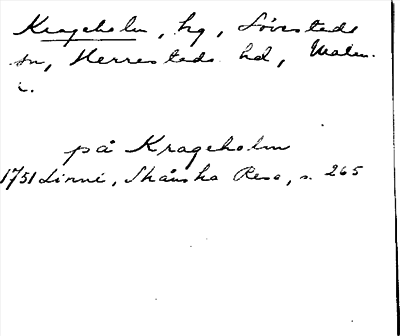 Krageholm, hg, Sövestads
sn, Herrestads hd, Malm.
l.
på Krageholm
1751 Linné, Skånska Resa, s. 265